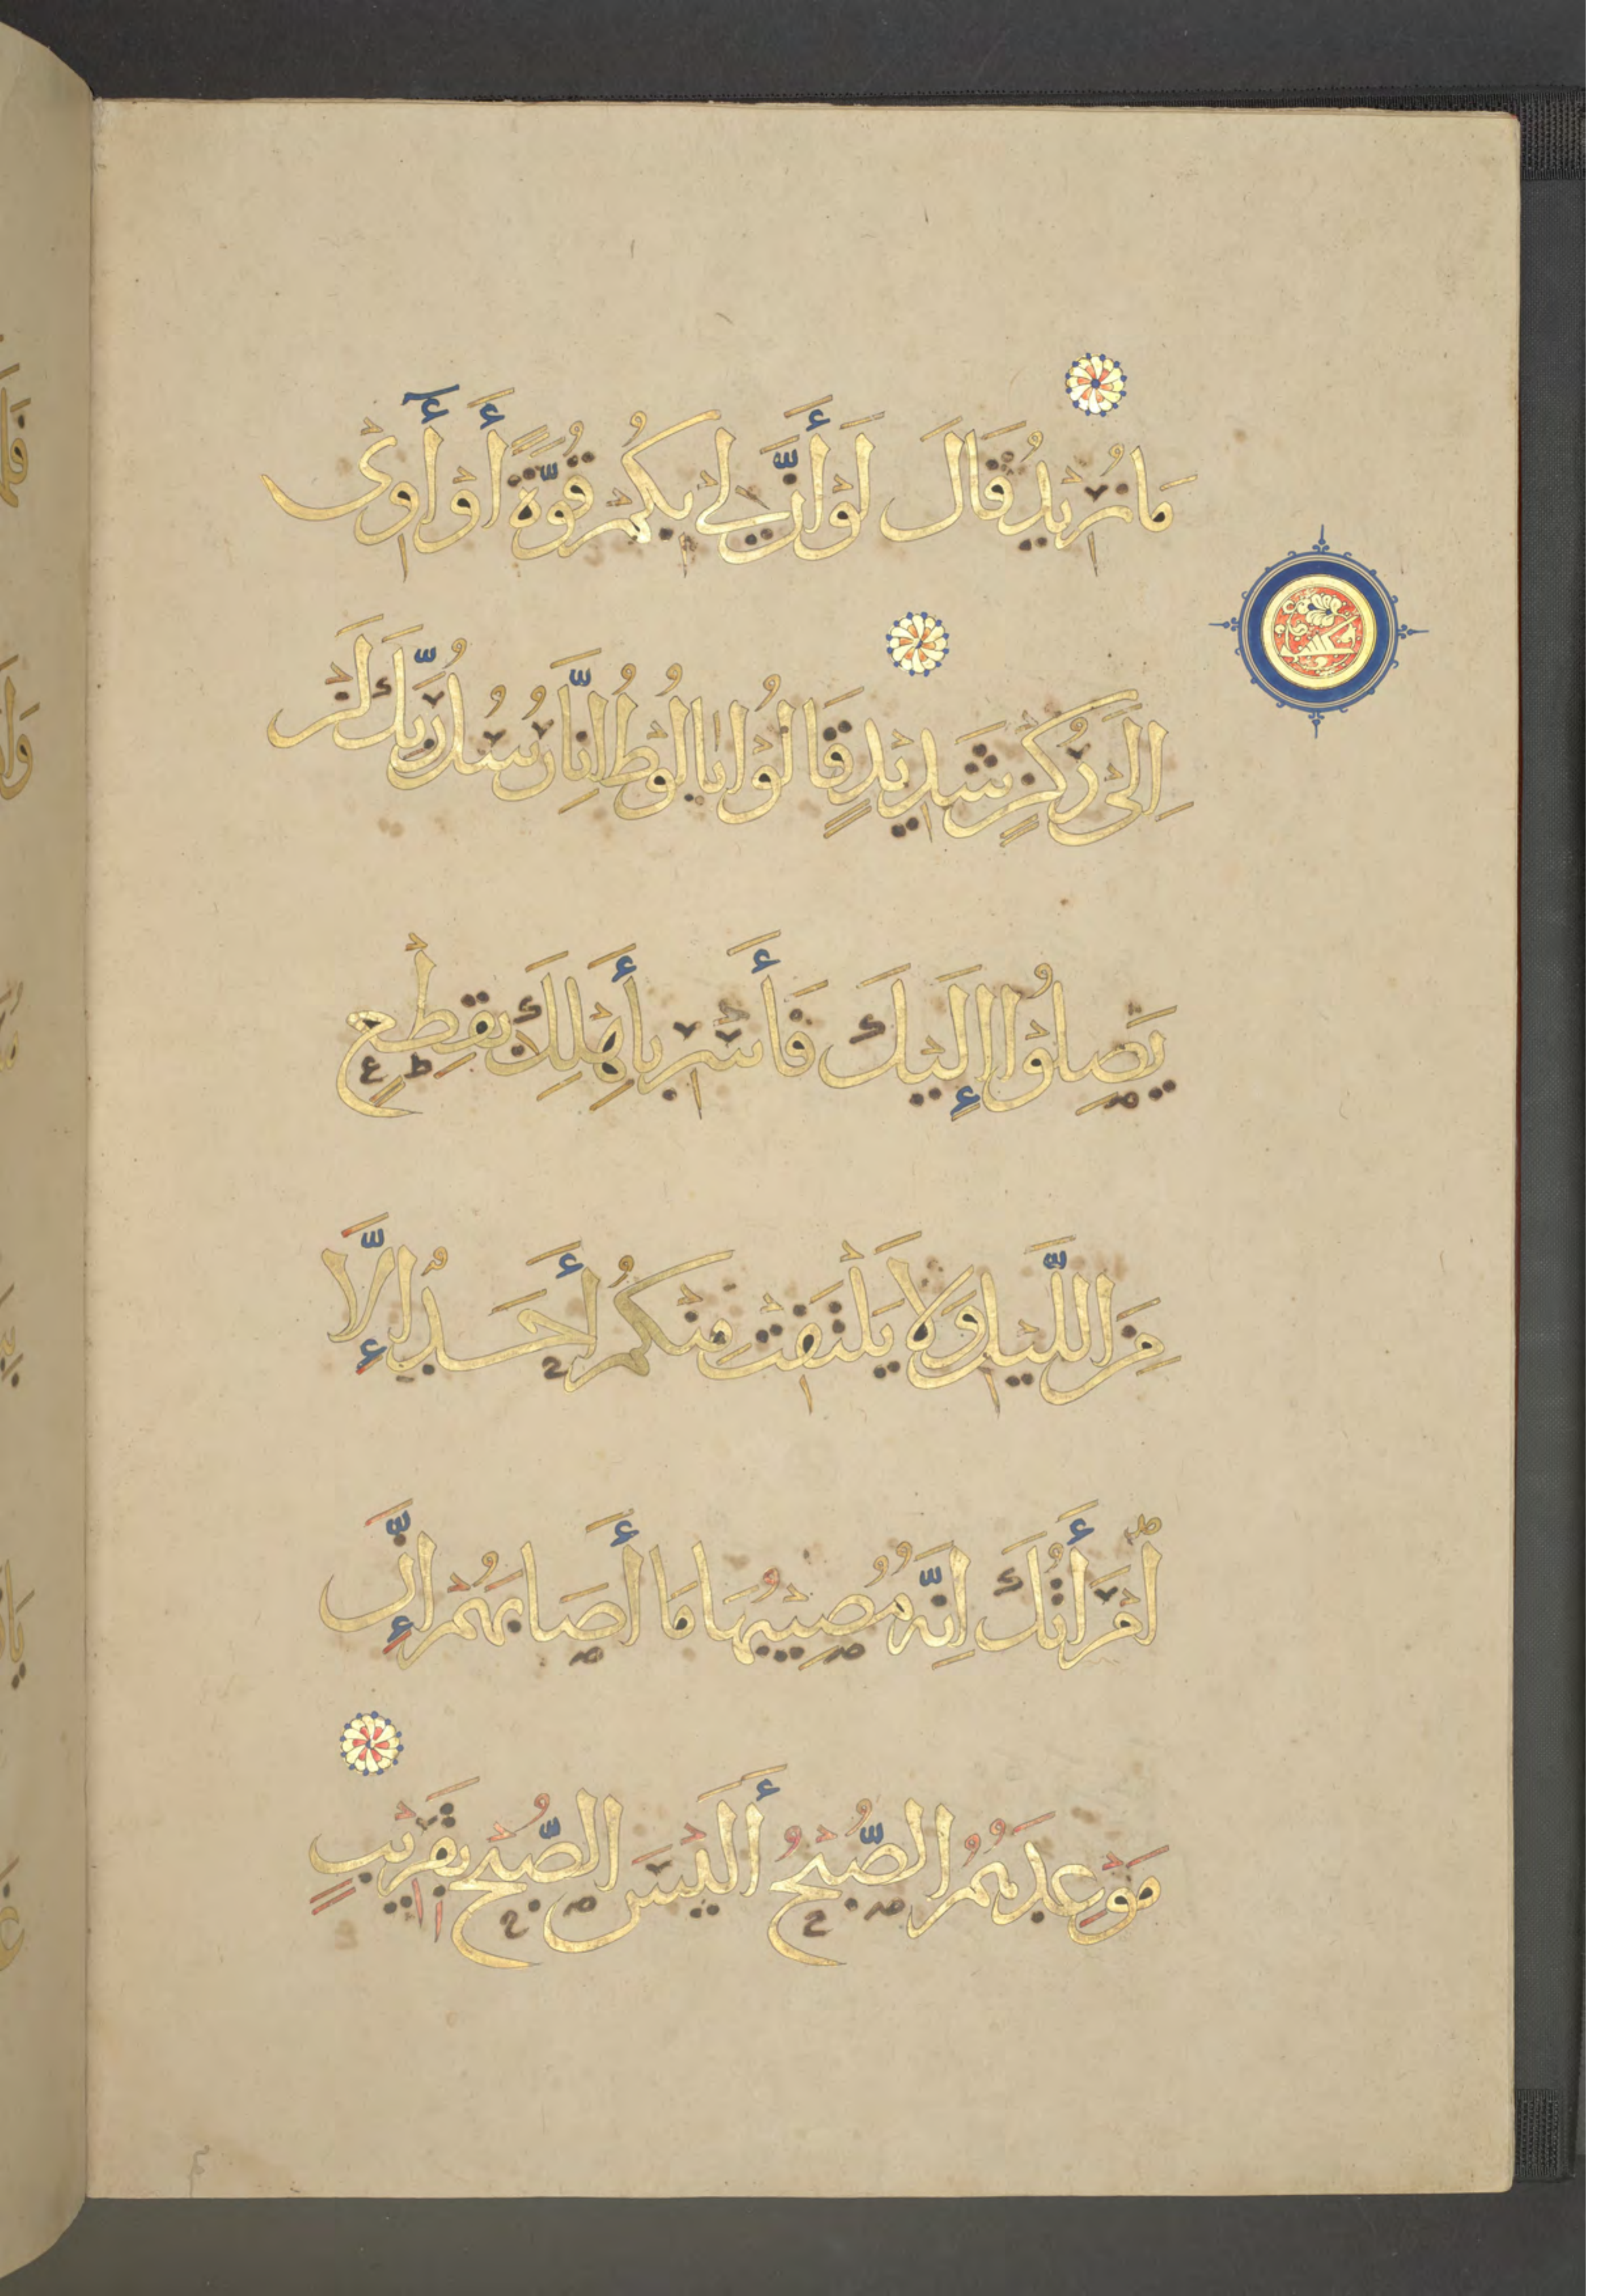 مَا نُرِيدُ قَالَ لَوْ أَنَّ لِي بِكُمْ قُوَّةً أَوْ أَوِى
إِلَى رُكْنٍ شَدِيدٍ قَالُوا يَا لُوطُ إِنَّا رُسُلُ رَبِّكَ لَنْ
يَصِلُوا إِلَيْكَ فَأَسْرِ بِأَهْلِكَ بِقِطْعٍ
مِنَ اللَّيْلِ وَلَا يَلْتَفِتْ مِنْكُمْ أَحَدٌ إِلَّا
امْرَأَتَكَ إِنَّهُ مُصِيبُهَا مَا أَصَابَهُمْ إِنَّ
مَوْعِدَهُمُ الصُّبْحُ أَلَيْسَ الصُّبْحُ بِقَرِيبٍ